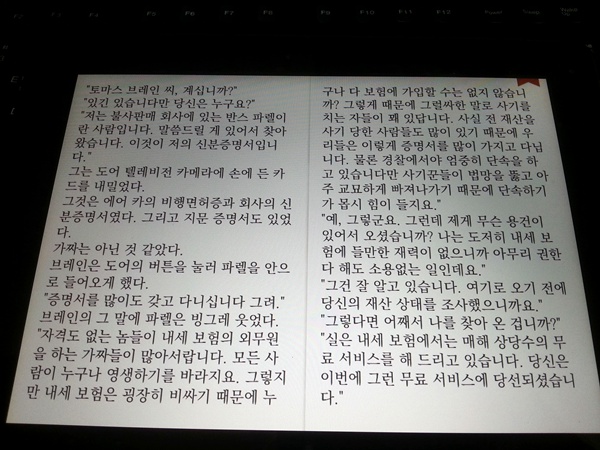 F5
F6
F7
F8
F9
F10
F11
F12
"토마스 브레인 씨, 계십니까?"
"있긴 있습니다만 당신은 누구요?"
"저는 불사판매 회사에 있는 반스 파렐이
란 사람입니다. 말씀드릴 게 있어서 찾아
왔습니다. 이것이 저의 신분증명서입니
다."
그는 도어 텔레비전 카메라에 손에 든 카
드를 내밀었다.
그것은 에어 카의 비행면허증과 회사의 신
분증명서였다. 그리고 지문 증명서도 있었
다.
가짜는 아닌 것 같았다.
브레인은 도어의 버튼을 눌러 파렐을 안으
로 들어오게 했다.
"증명서를 많이도 갖고 다니십니다 그려."
브레인의 그 말에 파렐은 빙그레 웃었다.
"자격도 없는 놈들이 내세 보험의 외무원
을 하는 가짜들이 많아서랍니다. 모든 사
람이 누구나 영생하기를 바라지요. 그렇지
만 내세 보험은 굉장히 비싸기 때문에 누
구나 다 보험에 가입할 수는 없지 않습니
까? 그렇게 때문에 그럴싸한 말로 사기를
치는 자들이 꽤 있답니다. 사실 전 재산을
사기 당한 사람들도 많이 있기 때문에 우
리들은 이렇게 증명서를 많이 가지고 다닙
니다. 물론 경찰에서야 엄중히 단속을 하
고 있습니다만 사기꾼들이 법망을 뚫고 아
주 교묘하게 빠져나가기 때문에 단속하기
가 몹시 힘이 들지요."
"예, 그렇군요. 그런데 제게 무슨 용건이
있어서 오셨습니까? 나는 도저히 내세 보
험에 들만한 재력이 없으니까 아무리 권한
다 해도 소용없는 일인데요."
"그건 잘 알고 있습니다. 여기로 오기 전에
당신의 재산 상태를 조사했으니까요."
"그렇다면 어째서 나를 찾아 온 겁니까?"
"실은 내세 보험에서는 매해 상당수의 무
료 서비스를 해 드리고 있습니다. 당신은
이번에 그런 무료 서비스에 당선되셨습니
다."